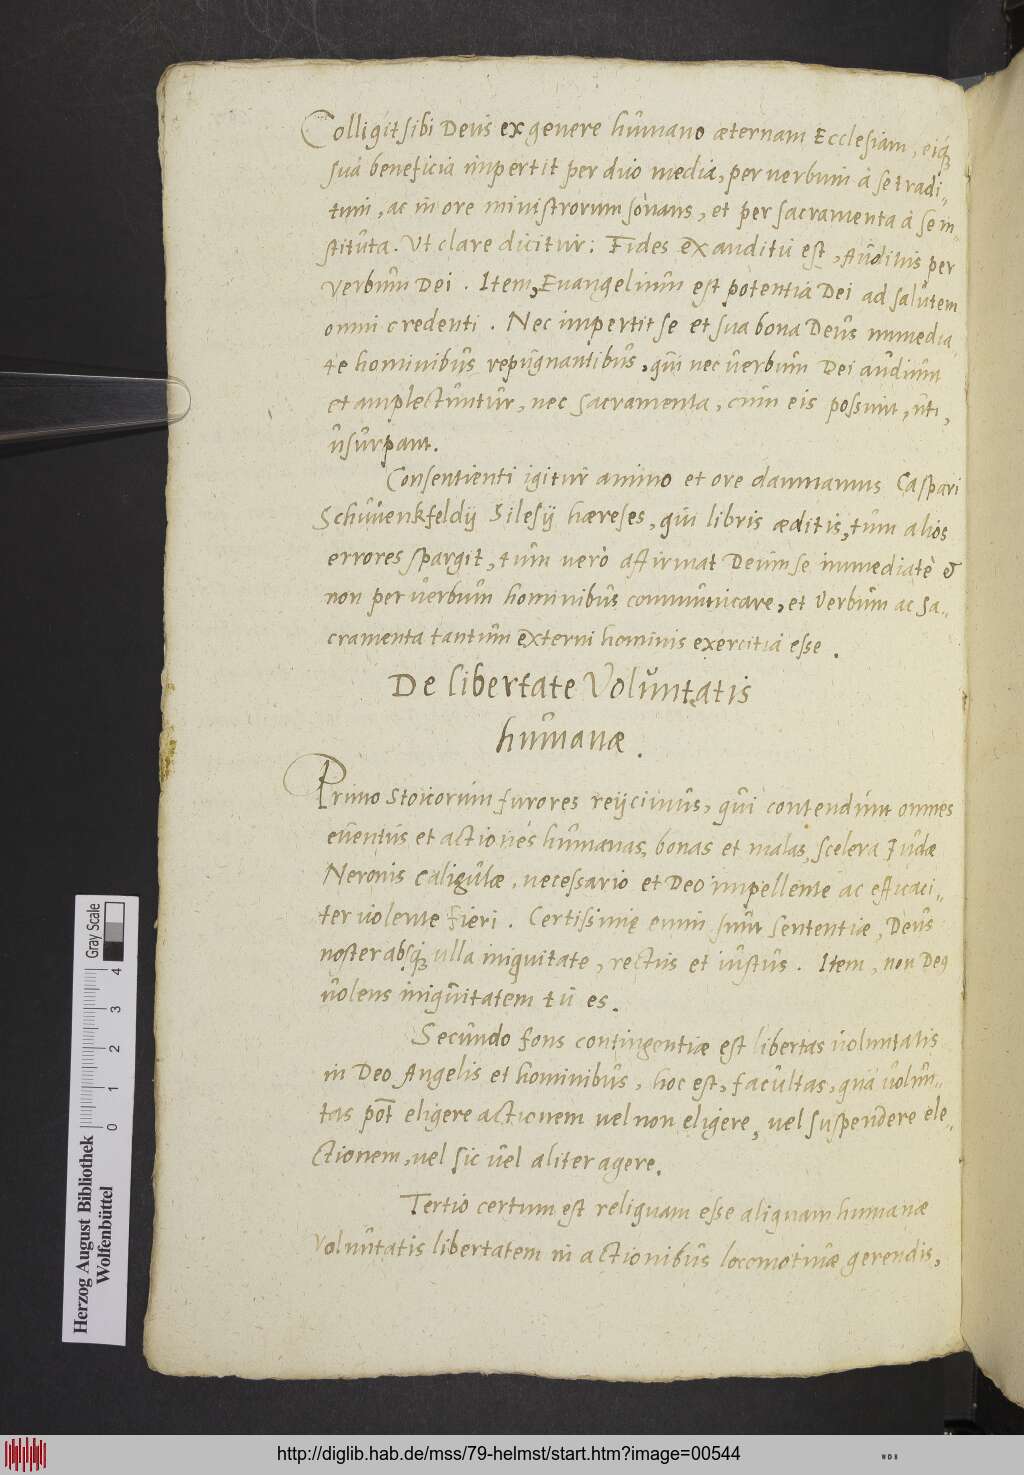 Colligit sibi Deus ex genere humano æternam Ecclesiam, eiq;
sua beneficia impertit per duo media, per uerbum à se tradi-
tum, ac in ore ministrorum sonans, et per sacramenta à se in-
stituta. Ut clare dicitur: Fides ex auditu est, Auditus per
verbum Dei. Item, Euangelium est potentia Dei ad salutem
omni credenti. Nec impertit se et sua bona Deus immedia
te hominibus repugnantibus, qui nec uerbum Dei audiunt
et amplectuntur, nec sacramenta, cum eis possunt, uti,
usurpant.
Consentienti igitur animo et ore damnamus Caspari
Schuuenkfeldij Silesij hæreses, qui libris æditis, tum alios
errores spargit, tum uerò affirmat Deum se immediatè &
non per uerbum hominibus communicare, et Verbum ac Sa-
cramenta tantum externi hominis exercitia esse.
De libertate Voluntatis
humanæ.
Primo Stoicorum furores reijcimus, qui contendunt omnes
euentus et actiones humanas, bonas et malas, scelera Judæ
Neronis Caligulæ, necessario et Deo impellente ac efficaci-
ter uiolente fieri. Certissimę enim sunt sententiæ, Deus
noster absq; ulla iniquitate, rectus et iustus. Item, non De9
uolens iniquitatem tu es.
Secundo fons contingentiæ est libertas uoluntatis
in Deo Angelis et hominibus, hoc est, facultas, qua uolun-
tas põt eligere actionem uel non eligere, uel suspendere ele-
ctionem, uel sic uel aliter agere.
Tertio certum est reliquam esse aliquam humanæ
Voluntatis libertatem in actionibus locomotiuæ gerendis,
Gray Scale
0 1 2 3 4
Herzog August Bibliothek
Wolfenbüttel
http://diglib.hab.de/mss/79-helmst/start.htm?image=00544
WDB